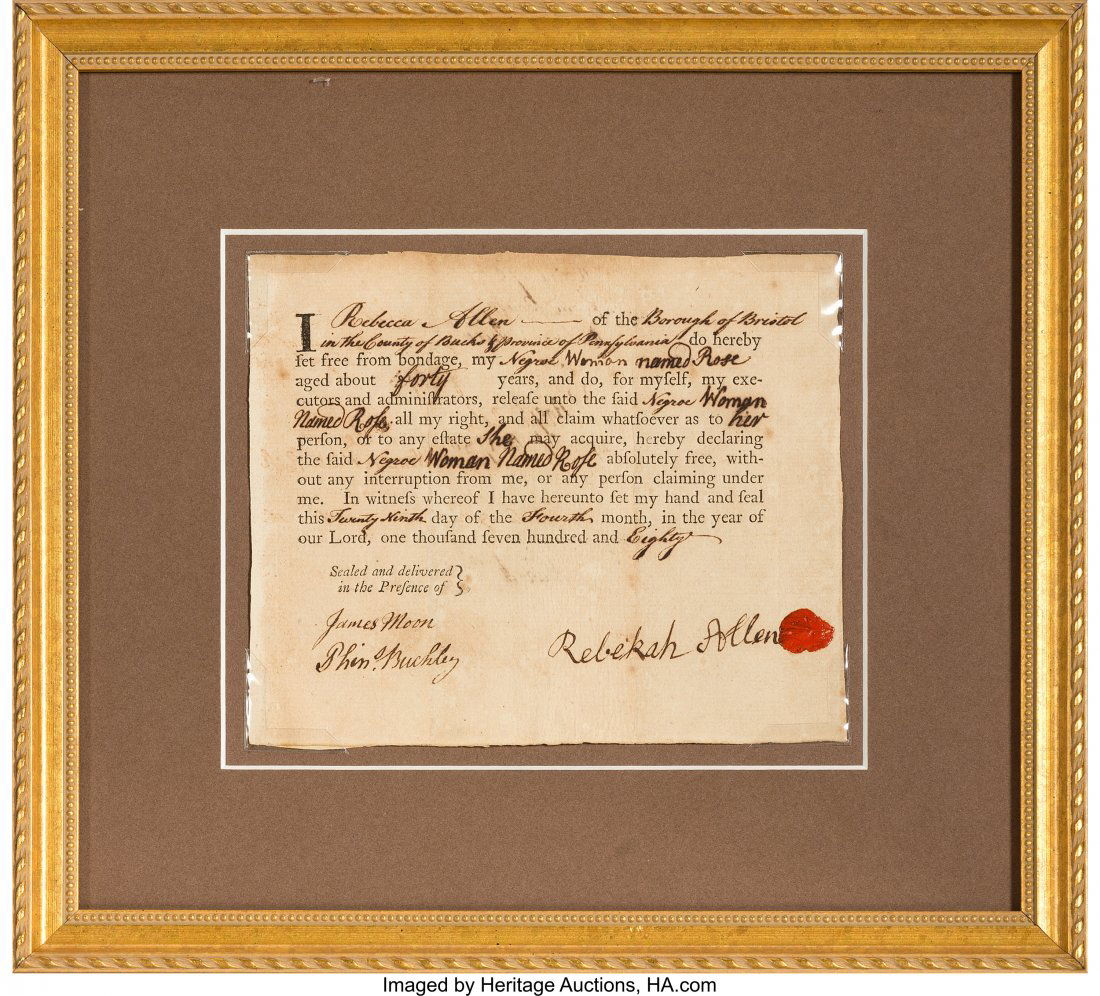 I Rebecca Allen — of the Borough of Bristol
in the County of Bucks & province of Pennsylvania do hereby
ſet free from bondage, my Negroe Woman named Rose
aged about forty years, and do, for myſelf, my exe-
cutors and adminiſtrators, releaſe unto the ſaid Negroe Woman
Named Roſe, all my right, and all claim whatſoever as to her
perſon, or to any eſtate She may acquire, hereby declaring
the ſaid Negroe Woman Named Roſe abſolutely free, with-
out any interruption from me, or any perſon claiming under
me. In witneſs whereof I have hereunto ſet my hand and ſeal
this Twenty Ninth day of the Fourth month, in the year of
our Lord, one thouſand ſeven hundred and Eighty
Sealed and delivered }
in the Preſence of }
James Moon
Rebekah Allen
Buckley
Imaged by Heritage Auctions, HA.com